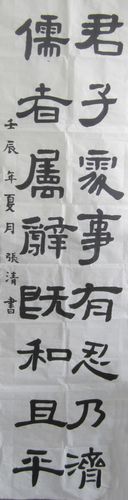 君子處事有忍乃濟
儒者属辭既和且平
壬辰年夏月張清書